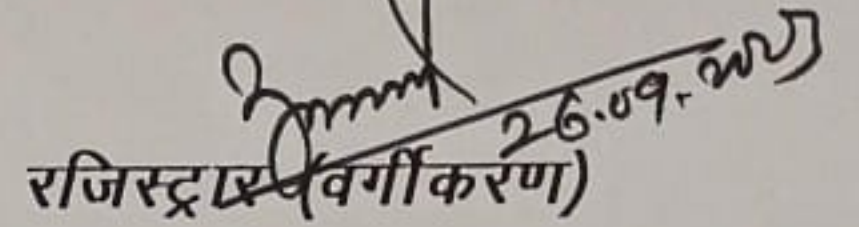 26.09.2025
रजिस्ट्रार (वर्गीकरण)